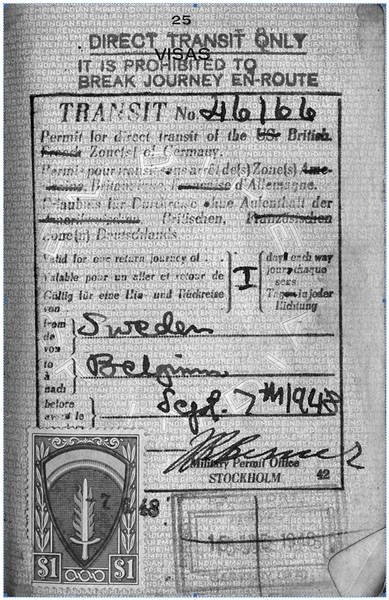 25
DIRECT TRANSIT ONLY
VISAS
IT IS PROHIBITED TO
BREAK JOURNEY EN-ROUTE
TRANSIT No 46166
Permit for direct transit of the US British
French Zone(s) of Germany.
Permis pour transit sans arrêt de(s) Zone(s) Amé-
ricaine, Britannique, Française d'Allemagne.
Erlaubnis für Durchreise ohne Aufenthalt der
Amerikanischen, Britischen, Französischen
Zone(n) Deutschlands.
Valid for one return journey of . . . I days each way
Valable pour un aller et retour de jours chaque sens
Gültig für eine Hin- und Rückreise von Tagen in jeder Richtung
from
de
von
Sweden
to
à
nach
Belgium
before
avant le
Sept. 7th 1948
Military Permit Office
STOCKHOLM 42
-7 48
$1 $1